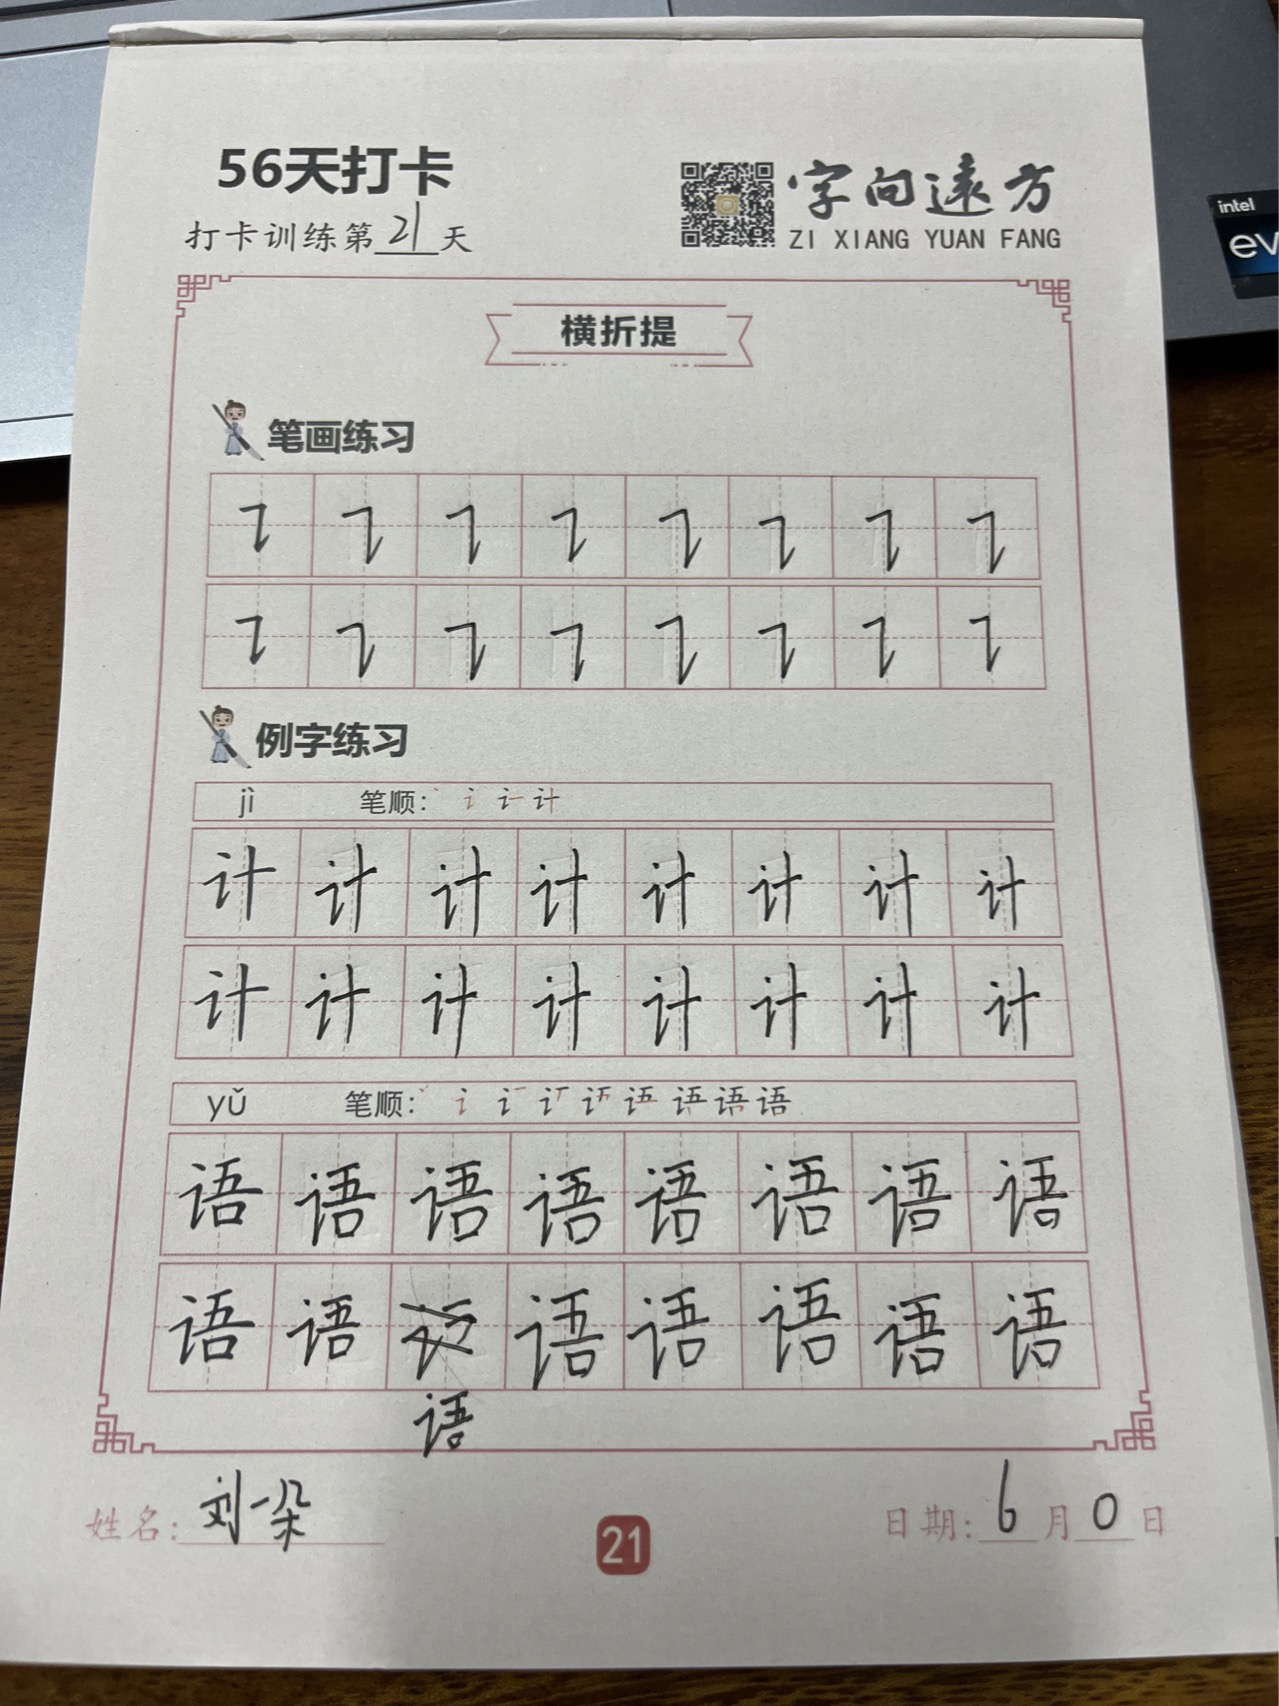 56天打卡
打卡训练第21天
字向遠方
ZI XIANG YUAN FANG
intel
ev
横折提
笔画练习
㇊ ㇊ ㇊ ㇊ ㇊ ㇊ ㇊ ㇊
㇊ ㇊ ㇊ ㇊ ㇊ ㇊ ㇊ ㇊
例字练习
jì 笔顺: 丶 讠 计
计 计 计 计 计 计 计 计
计 计 计 计 计 计 计 计
yǔ 笔顺: 语
语 语 语 语 语 语 语 语
语 语 语 语 语 语 语
语
姓名: 刘一朵
21
日期: 6月0日